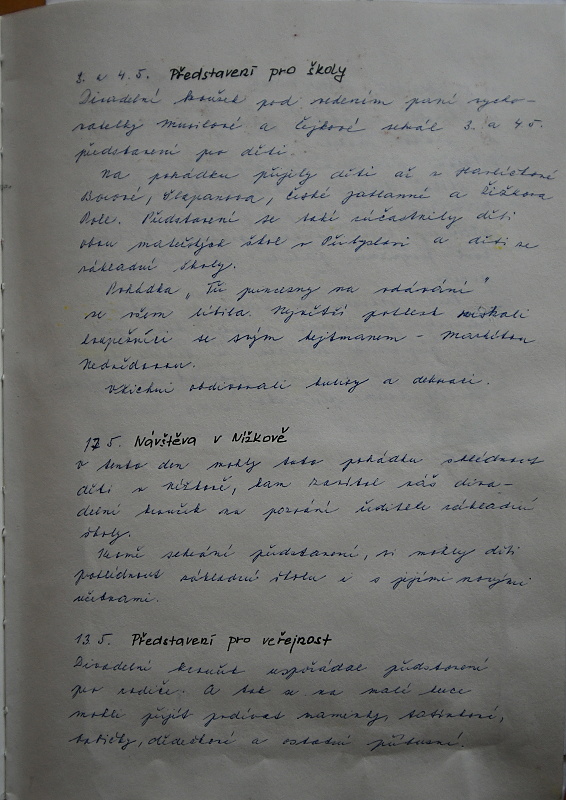 3. a 4.5. Představení pro školy
Divadelní kroužek pod vedením paní vycho-
vatelky Musilové a Čejkové sehrál 3. a 4.5.
představení pro děti.
Na pohádku přijely děti až z Havlíčkové
Borové, Šlapanova, České Jablonné a Žižkova
Pole. Představení se také zúčastnily děti
obou mateřských škol v Přibyslavi a děti ze
základní školy.
Pohádka „Tři princezny na vdávání"
se všem líbila. Největší potlesk získali
loupežníci se svým hejtmanem - Markétou
Všichni obdivovali kulisy a dekoraci.
12. 5. Návštěva v Nížkově
V tento den mohly tuto pohádku shlédnout
děti v Nížkově, kam zavítal náš diva-
delní kroužek na pozvání ředitele základní
školy.
Kromě sehrání představení, si mohly děti
prohlédnout základní školu i s jejími novými
učebnami.
13. 5. Představení pro veřejnost
Divadelní kroužek uspořádal představení
pro rodiče. A tak se na malé herce
mohli přijít podívat maminky, tatínkové,
babičky, dědečkové a ostatní příbuzní.